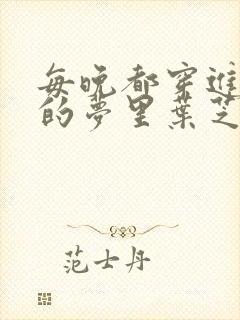 每晚都穿進
的夢里葉芝
范士丹